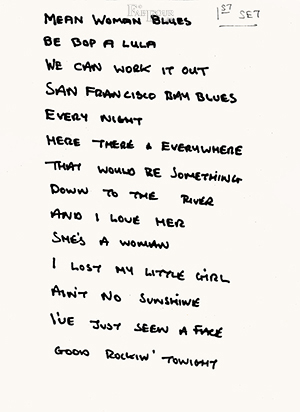 1ST SET
MEAN WOMAN BLUES
BE BOP A LULA
WE CAN WORK IT OUT
SAN FRANCISCO BAY BLUES
EVERY NIGHT
HERE THERE & EVERYWHERE
THAT WOULD BE SOMETHING
DOWN TO THE RIVER
AND I LOVE HER
SHE'S A WOMAN
I LOST MY LITTLE GIRL
AIN'T NO SUNSHINE
I'VE JUST SEEN A FACE
GOOD ROCKIN' TONIGHT